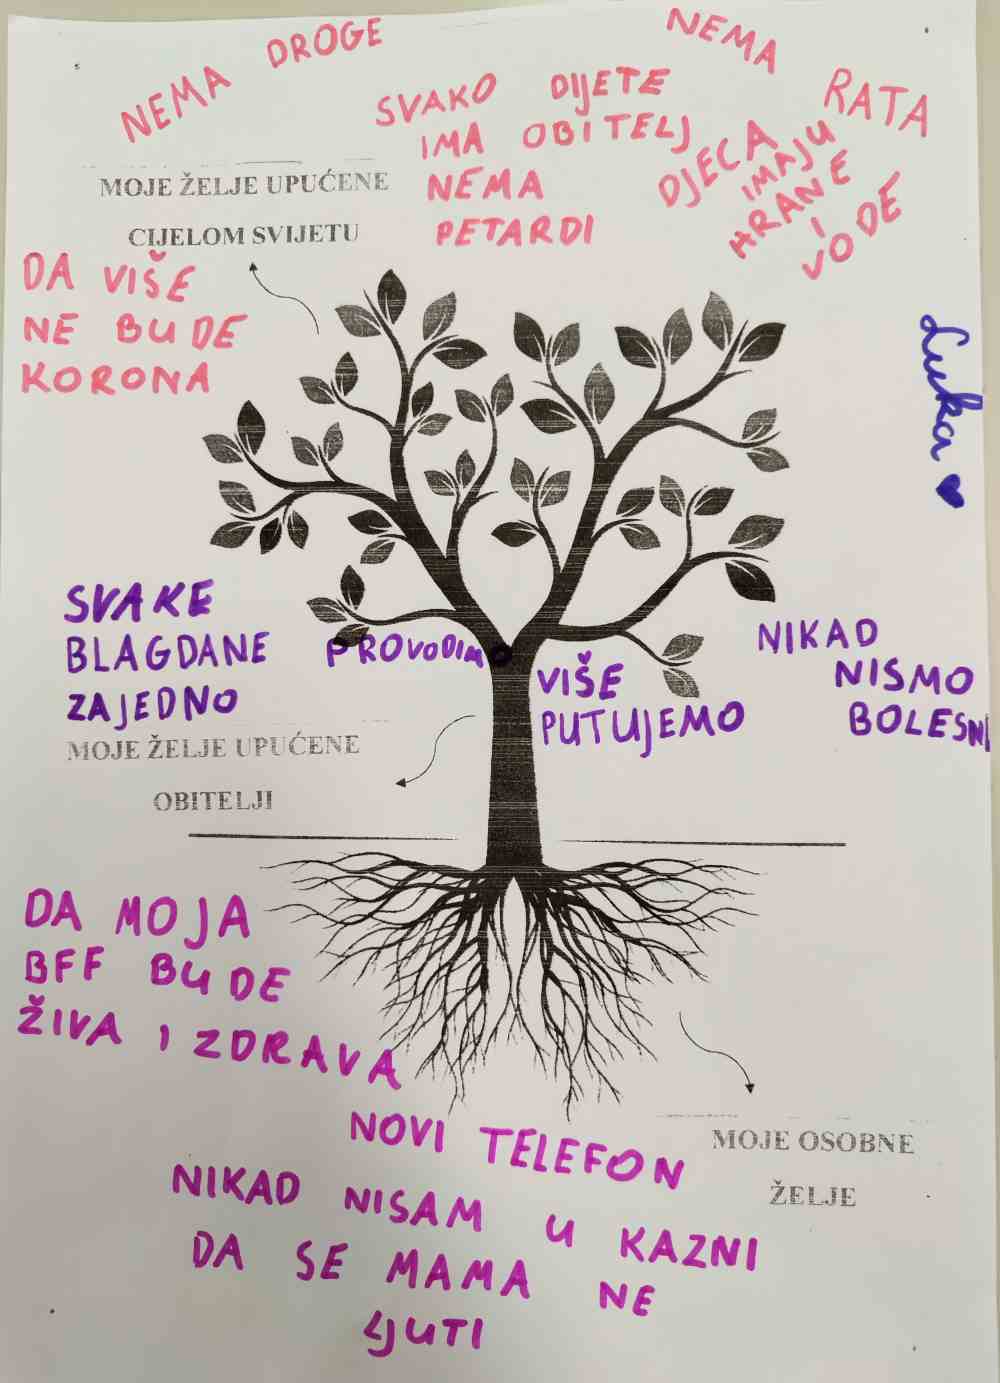 NEMA DROGE
NEMA RATA
SVAKO DIJETE
IMA OBITELJ
NEMA
PETARDI
DJECA
IMAJU
HRANE
I
VODE
MOJE ŽELJE UPUĆENE
CIJELOM SVIJETU
DA VIŠE
NE BUDE
KORONA
Luka
SVAKE
BLAGDANE PROVODIMO
ZAJEDNO
VIŠE
PUTUJEMO
NIKAD
NISMO
BOLESNI
MOJE ŽELJE UPUĆENE
OBITELJI
DA MOJA
BFF BUDE
ŽIVA I ZDRAVA
NOVI TELEFON
MOJE OSOBNE
ŽELJE
NIKAD NISAM U KAZNI
DA SE MAMA NE
LJUTI